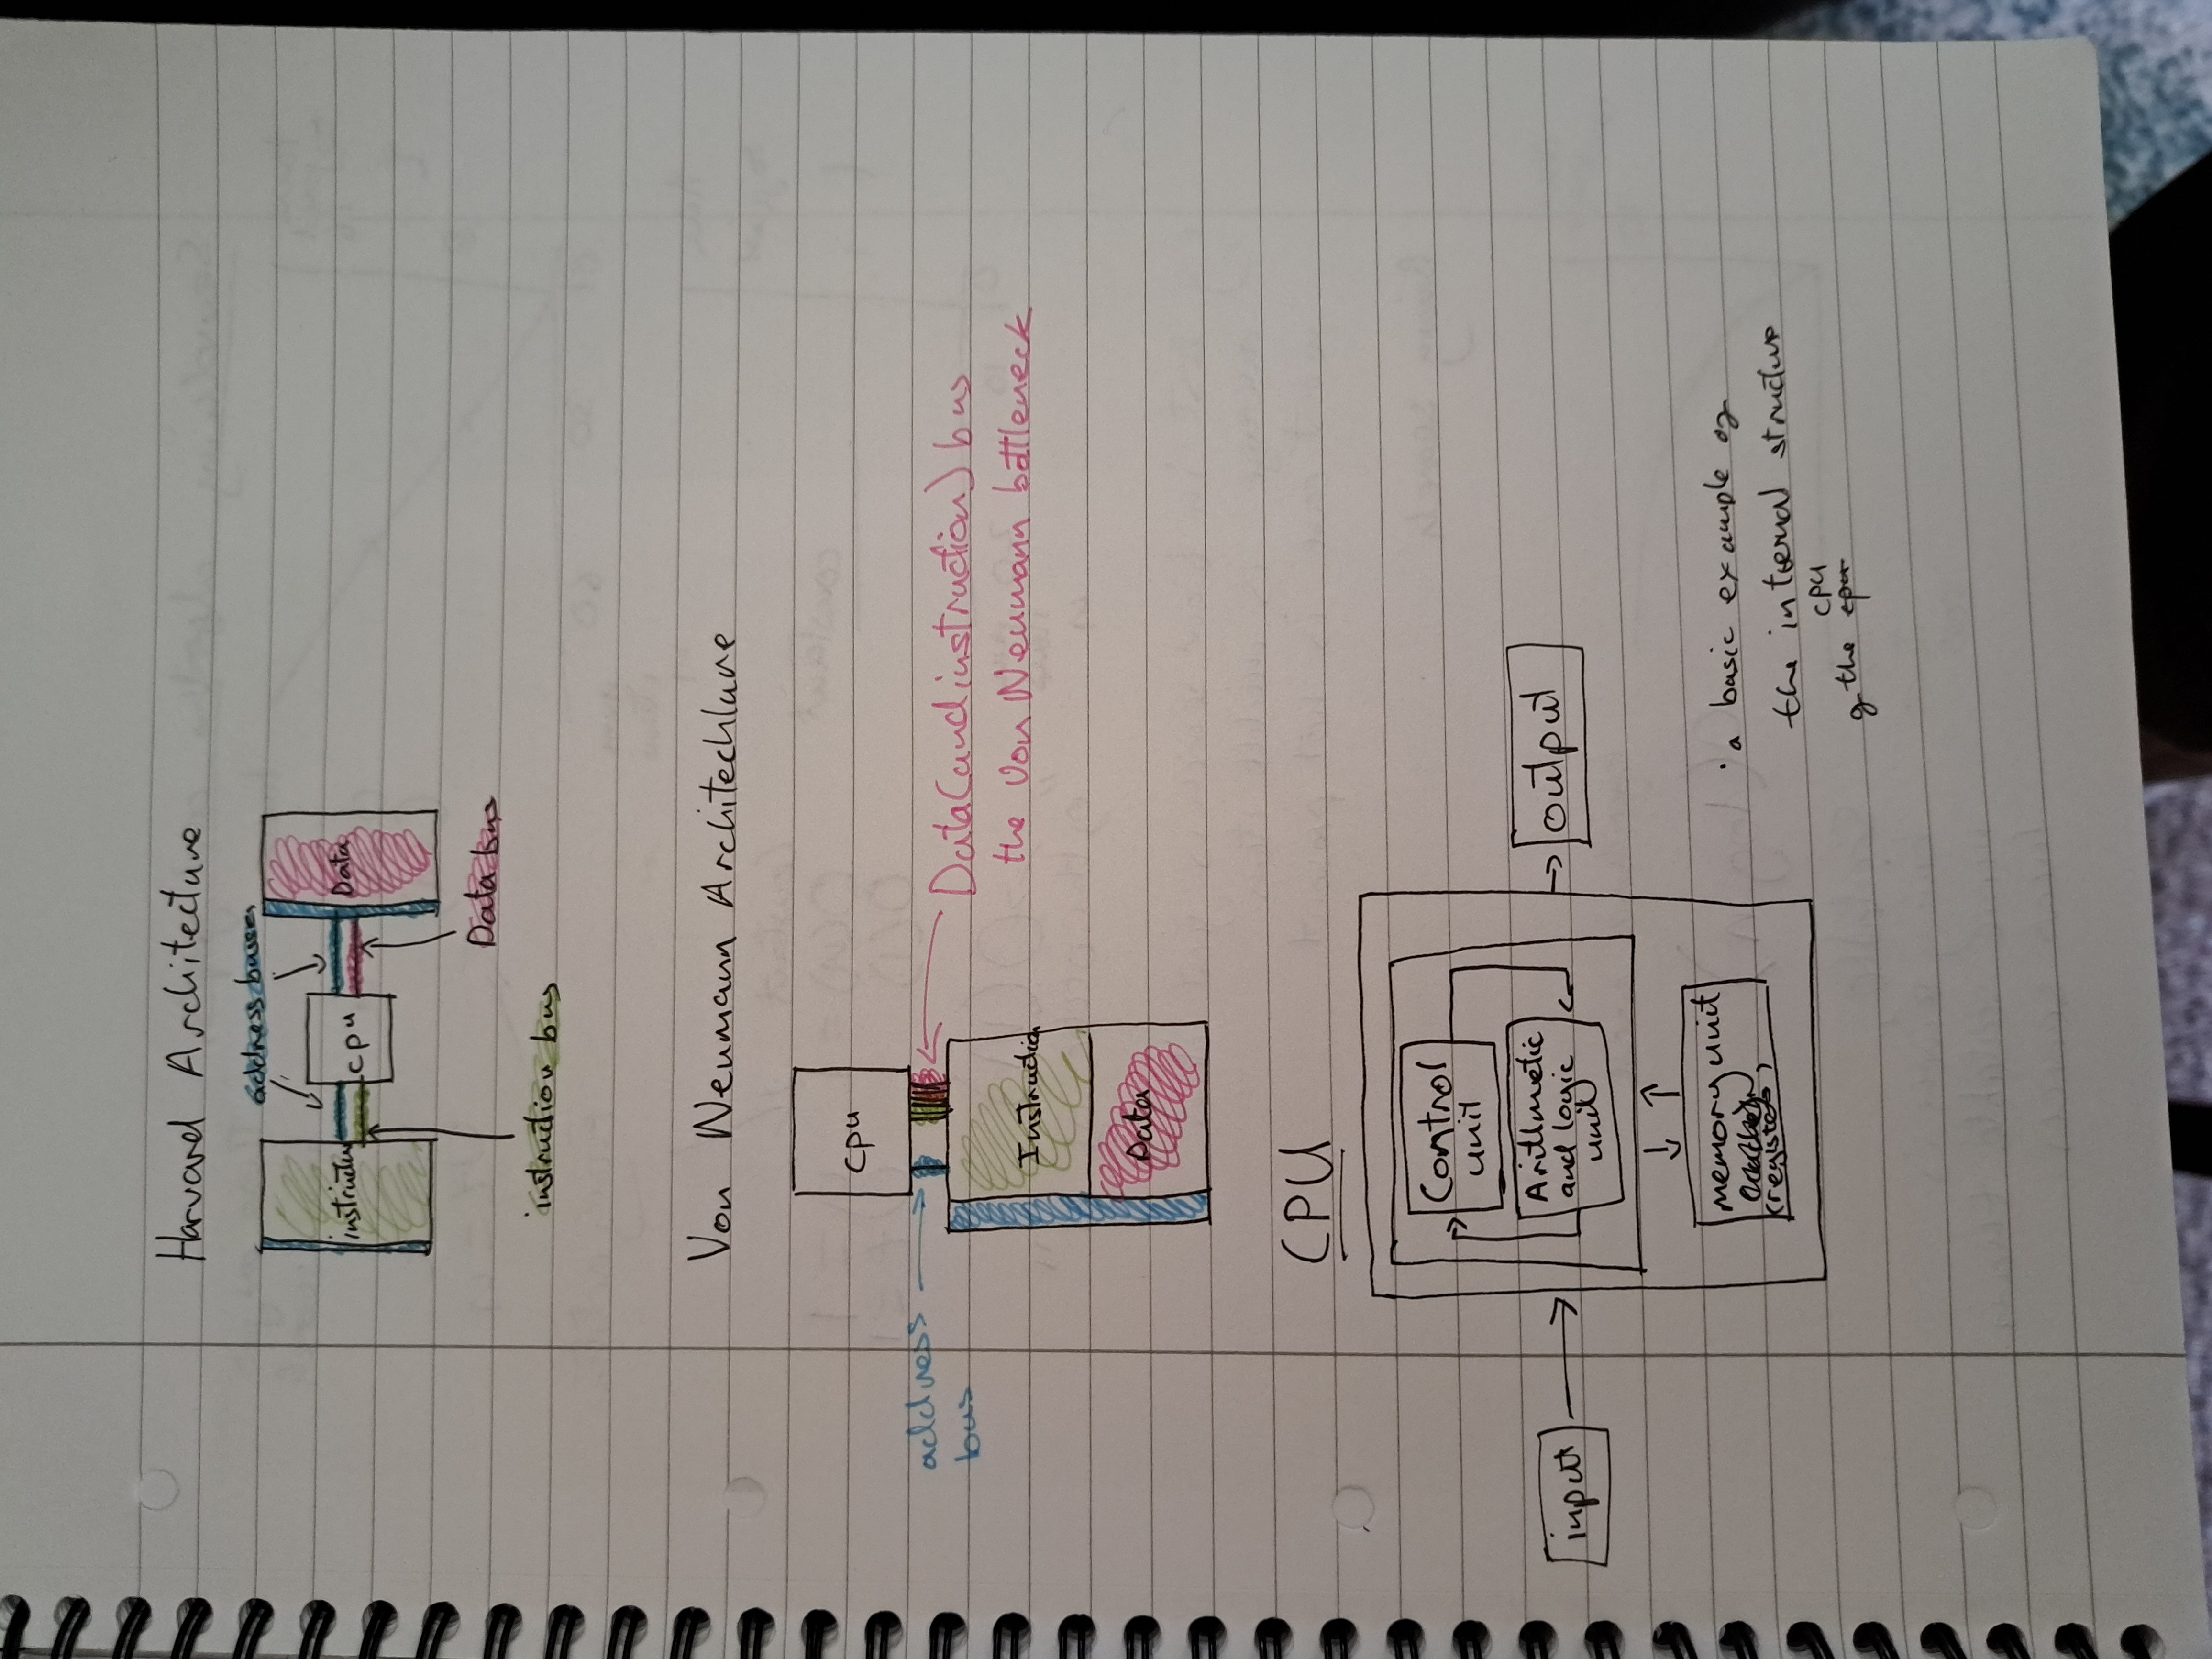 Harvard Architecture
address busses
instruction
cpu
Data
Data bus
instruction bus
Von Neumann Architechture
cpu
address
bus
Data (and instruction) bus
the Von Neumann bottleneck
Instruction
Data
CPU
Control
unit
Arithmetic
and logic
unit
input
output
memory unit
(registers)
· a basic example of
the internal structure
cpu
of the cpu